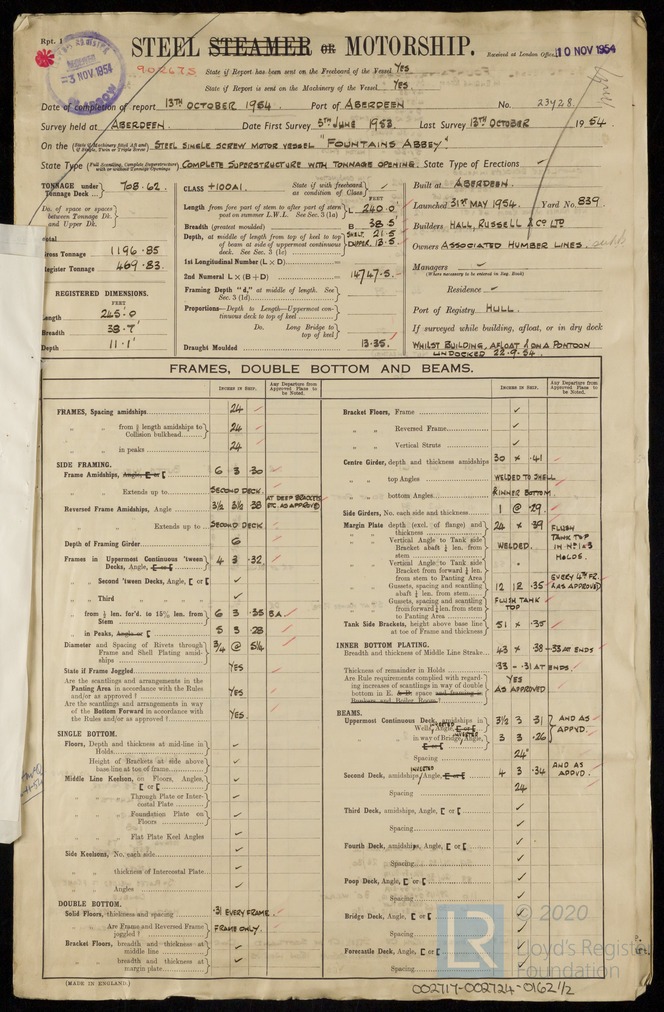 Rpt. 1
3 NOV 1954
STEEL STEAMER OR MOTORSHIP.
Received at London Office 10 NOV 1954
State if Report has been sent on the Freeboard of the Vessel YES
State if Report is sent on the Machinery of the Vessel YES
Date of completion of report 13TH OCTOBER 1954 Port of ABERDEEN No. 23428
Survey held at ABERDEEN. Date First Survey 5TH JUNE 1953 Last Survey 13TH OCTOBER 1954
On the STEEL SINGLE SCREW MOTOR VESSEL "FOUNTAINS ABBEY"
State Type COMPLETE SUPERSTRUCTURE WITH TONNAGE OPENING. State Type of Erections ✓
TONNAGE under Tonnage Deck 708.62.
Do. of space or spaces between Tonnage Dk. and Upper Dk.
Total
Gross Tonnage 1196.85
Register Tonnage 469.83.
REGISTERED DIMENSIONS.
FEET
Length 245.0'
Breadth 38.7'
Depth 11.1'
CLASS +100A1. State if with freeboard as condition of Class ✓
FEET
Length from fore part of stem to after part of stern post on summer L.W.L. See Sec. 3 (1a) L 240.0'
Breadth (greatest moulded) B 38.5'
Depth, at middle of length from top of keel to top of beam at side of uppermost continuous deck. See Sec. 3 (1c) 21.5 UPPER. 13.5
1st Longitudinal Number (L × D)
2nd Numeral L × (B + D) 14747.5.
Framing Depth "d," at middle of length. See Sec. 3 (1d)
Proportions—Depth to Length—Uppermost continuous deck to top of keel
Do. Long Bridge to top of keel
Draught Moulded 13.35.
Built at ABERDEEN.
Launched 31ST MAY 1954. Yard No. 839
Builders HALL, RUSSELL & CO LTD
Owners ASSOCIATED HUMBER LINES.
Managers ✓
(Where necessary to be entered in Reg. Book)
Residence ✓
Port of Registry HULL.
If surveyed while building, afloat, or in dry dock
WHILST BUILDING, AFLOAT & ON A PONTOON
UNDOCKED 22.9.54.
FRAMES, DOUBLE BOTTOM AND BEAMS.
INCHES IN SHIP. Any Departure from Approved Plans to be Noted.
FRAMES, Spacing amidships 24
" " from ⅕ length amidships to Collision bulkhead 24
" " in peaks 24
SIDE FRAMING.
Frame Amidships, Angle, [ or [ 6 3 .30
" Extends up to SECOND DECK.
Reversed Frame Amidships, Angle 3½ 3½ .38 AT DEEP BRACKETS ETC. AS APPROVED
" " Extends up to SECOND DECK
Depth of Framing Girder 6
Frames in Uppermost Continuous 'tween Decks, Angle, [ or [ 4 3 .32.
" Second 'tween Decks, Angle, [ or [ ✓
" Third " " " ✓
" from ⅕ len. for'd. to 15% len. from Stem 6 3 .35 B.A.
" in Peaks, Angle or [ 5 3 .28
Diameter and Spacing of Rivets through Frame and Shell Plating amidships ¾ @ 5¼
State if Frame Joggled YES
Are the scantlings and arrangements in the Panting Area in accordance with the Rules and/or as approved? YES
Are the scantlings and arrangements in way of the Bottom Forward in accordance with the Rules and/or as approved? YES.
SINGLE BOTTOM.
Floors, Depth and thickness at mid-line in Holds ✓
" Height of Brackets at side above base line at toe of frame ✓
Middle Line Keelson, on Floors, Angles, [ or [ ✓
" " Through Plate or Intercostal Plate ✓
" " Foundation Plate on Floors ✓
" " Flat Plate Keel Angles ✓
Side Keelsons, No. each side ✓
" " thickness of Intercostal Plate ✓
" " Angles ✓
DOUBLE BOTTOM.
Solid Floors, thickness and spacing .31 EVERY FRAME.
" Are Frame and Reversed Frame joggled? FRAME ONLY.
Bracket Floors, breadth and thickness at middle line ✓
" " breadth and thickness at margin plate ✓
INCHES IN SHIP. Any Departure from Approved Plans to be Noted.
Bracket Floors, Frame ✓
" " Reversed Frame ✓
" " Vertical Struts ✓
Centre Girder, depth and thickness amidships 30 × .41
" " top Angles WELDED TO SHELL
" " bottom Angles & INNER BOTTOM.
Side Girders, No. each side and thickness 1 @ .29.
Margin Plate depth (excl. of flange) and thickness 24 × .39 FLUSH TANK TOP IN Nº 1 & 3 HOLDS.
" " Vertical Angle to Tank side Bracket abaft ¼ len. from stem WELDED.
" " Vertical Angle to Tank side Bracket from forward ¼ len. from stem to Panting Area
" " Gussets, spacing and scantling abaft ¼ len. from stem 12 12 .35 EVERY 4TH FR. AS APPROVED
" " Gussets, spacing and scantling from forward ¼ len. from stem to Panting Area FLUSH TANK TOP
Tank Side Brackets, height above base line at toe of Frame and thickness 51 × .35
INNER BOTTOM PLATING.
Breadth and thickness of Middle Line Strake 43 × .38-.33 AT ENDS
Thickness of remainder in Holds .33 - .31 AT ENDS.
Are Rule requirements complied with regarding increases of scantlings in way of double bottom in E. & B. space and framing in Bunkers and Boiler Room? YES AS APPROVED
BEAMS.
Uppermost Continuous Deck, amidships in Wells, INVERTED Angle, [ or [ 3½ 3 .31 AND AS APPVD.
" " in way of Bridge, INVERTED Angle, [ or [ 3 3 .26
Spacing 24"
Second Deck, amidships, INVERTED Angle, [ or [ 4 3 .34 AND AS APPVD.
Spacing 24
Third Deck, amidships, Angle, [ or [ ✓
Spacing ✓
Fourth Deck, amidships, Angle, [ or [ ✓
Spacing ✓
Poop Deck, Angle, [ or [ ✓
Spacing ✓
Bridge Deck, Angle, [ or [ ✓
Spacing ✓
Forecastle Deck, Angle, [ or [ ✓
Spacing ✓
(MADE IN ENGLAND.)
LR © 2020
Lloyd's Register
Foundation
002717-002724-0162½